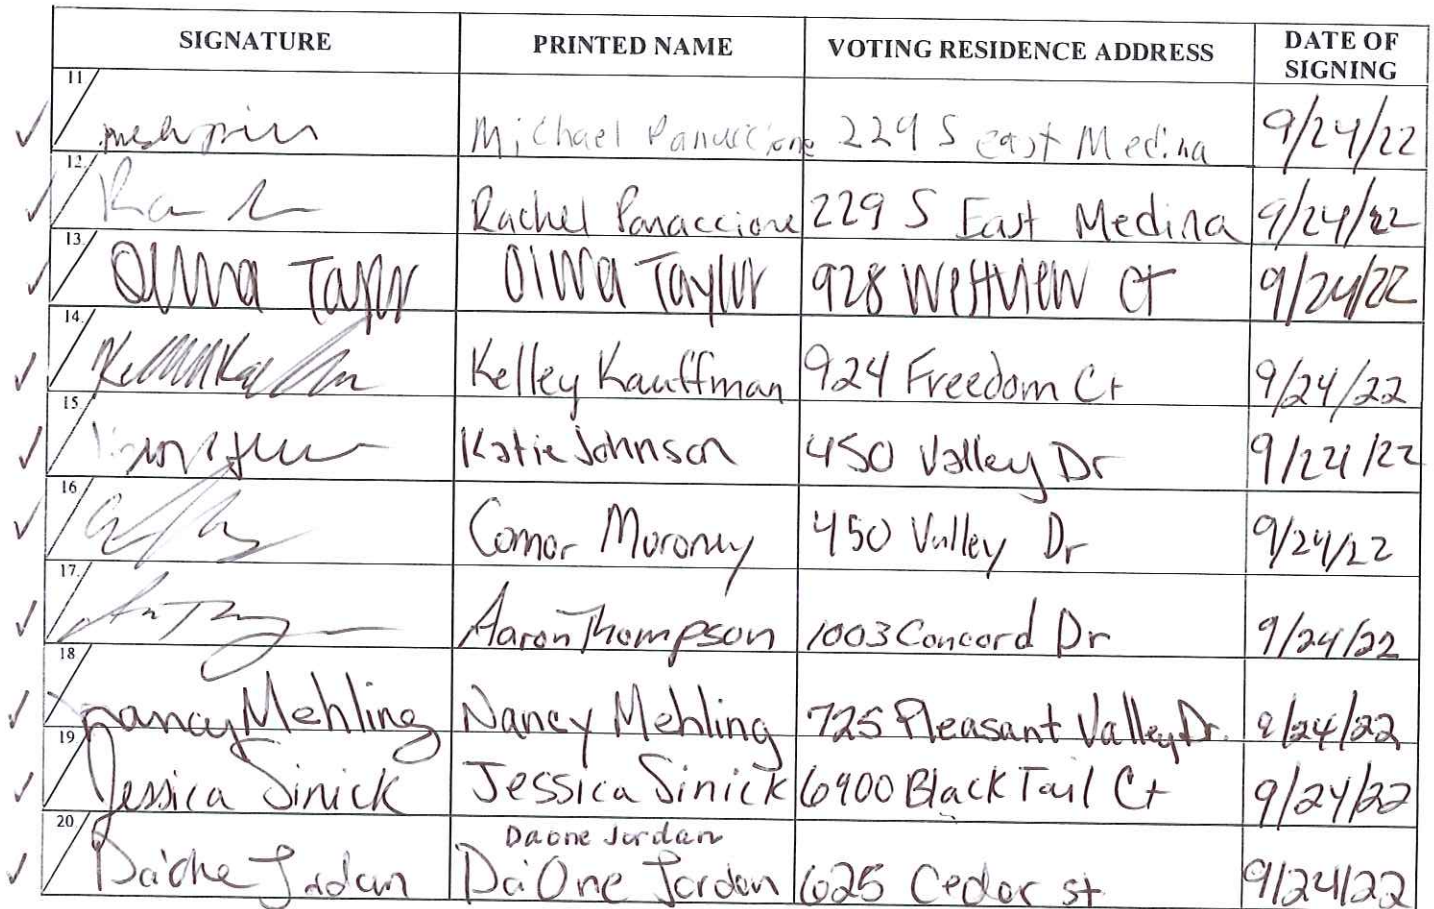 SIGNATURE PRINTED NAME VOTING RESIDENCE ADDRESS DATE OF SIGNING
11 Michael Panuccione 229 S east Medina 9/24/22
12. Rachel Panaccione 229 S East Medina 9/24/22
13. Olivia Taylor Olivia Taylor 928 Westview Ct 9/24/22
14. Kelley Kauffman 924 Freedom Ct 9/24/22
15. Katie Johnson 450 Valley Dr 9/24/22
16 Connor Moroney 450 Valley Dr 9/24/22
17. Aaron Thompson 1003 Concord Dr 9/24/22
18 Nancy Mehling Nancy Mehling 725 Pleasant Valley Dr. 9/24/22
19 Jessica Sinick Jessica Sinick 6900 Black Tail Ct 9/24/22
Daone Jordan
20 Daione Jordan DaiOne Jordan 625 Cedar st 9/24/22